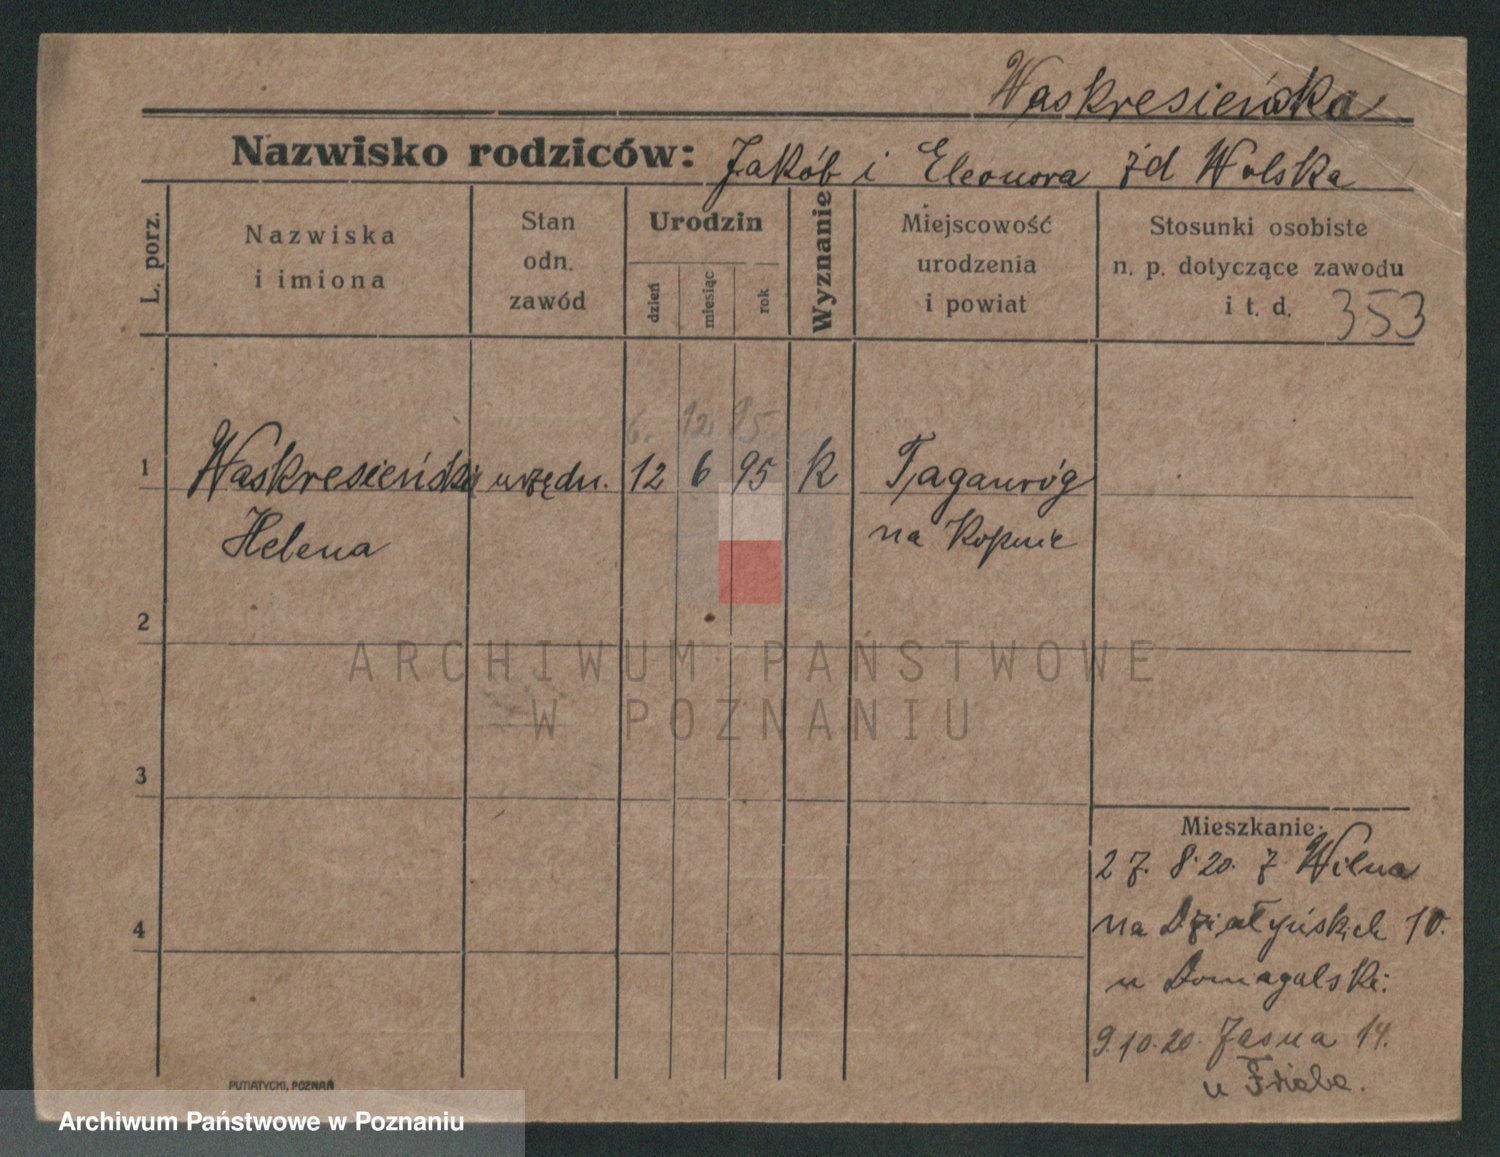 Waskresieńska
Nazwisko rodziców: Jakób i Eleonora żd Wolska
L. porz.
Nazwiska
i imiona
Stan
odn.
zawód
Urodzin
dzień
miesiąc
rok
Wyznanie
Miejscowość
urodzenia
i powiat
Stosunki osobiste
n. p. dotyczące zawodu
i t. d.
353
6. 12. 95.
1 Waskresieńska urzędn. 12 6 95 k Taganróg
Helena na
2
3
4
Mieszkanie:
27. 8. 20. z Wilna
na Działyńskich 10.
u Domagalski:
9.10.20. Jasna 14.
u
PUTIATYCKI, POZNAŃ
ARCHIWUM PAŃSTWOWE
W POZNANIU
Archiwum Państwowe w Poznaniu